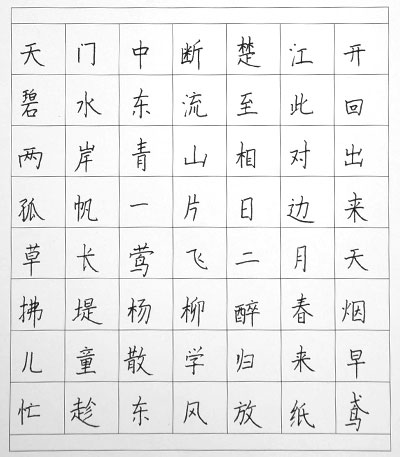 天门中断楚江开
碧水东流至此回
两岸青山相对出
孤帆一片日边来
草长莺飞二月天
拂堤杨柳醉春烟
儿童散学归来早
忙趁东风放纸鸢